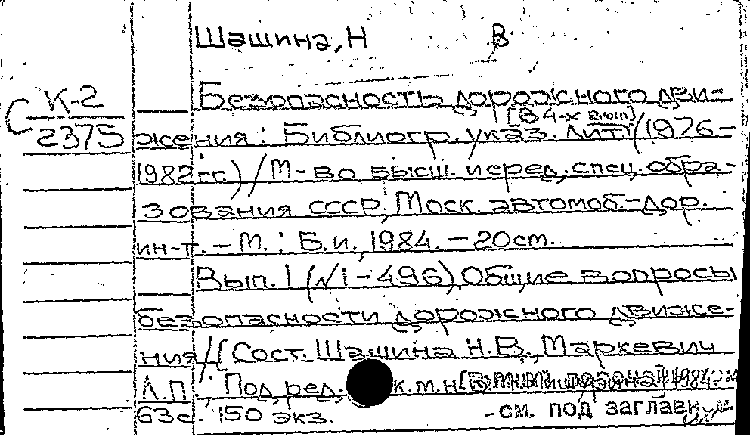 Шашина, Н В
С К-2
2375
Безопасность дорожного дви-
[В 4-х вып]
жения: Библиогр. указ. лит. (1976-
1982 гг.) / М-во высш. и сред. спец. обра-
зования СССР, Моск. автомоб.-дор.
ин-т. - М.: Б.и., 1984. - 20 см.
Вып. 1 (№1-496) Общие вопросы
безопасности дорожного движе-
ния / [Сост. Шашина Н.В., Маркевич
Л.П.; Под ред. к.т.н.
63с. 150 экз. - см. под заглави